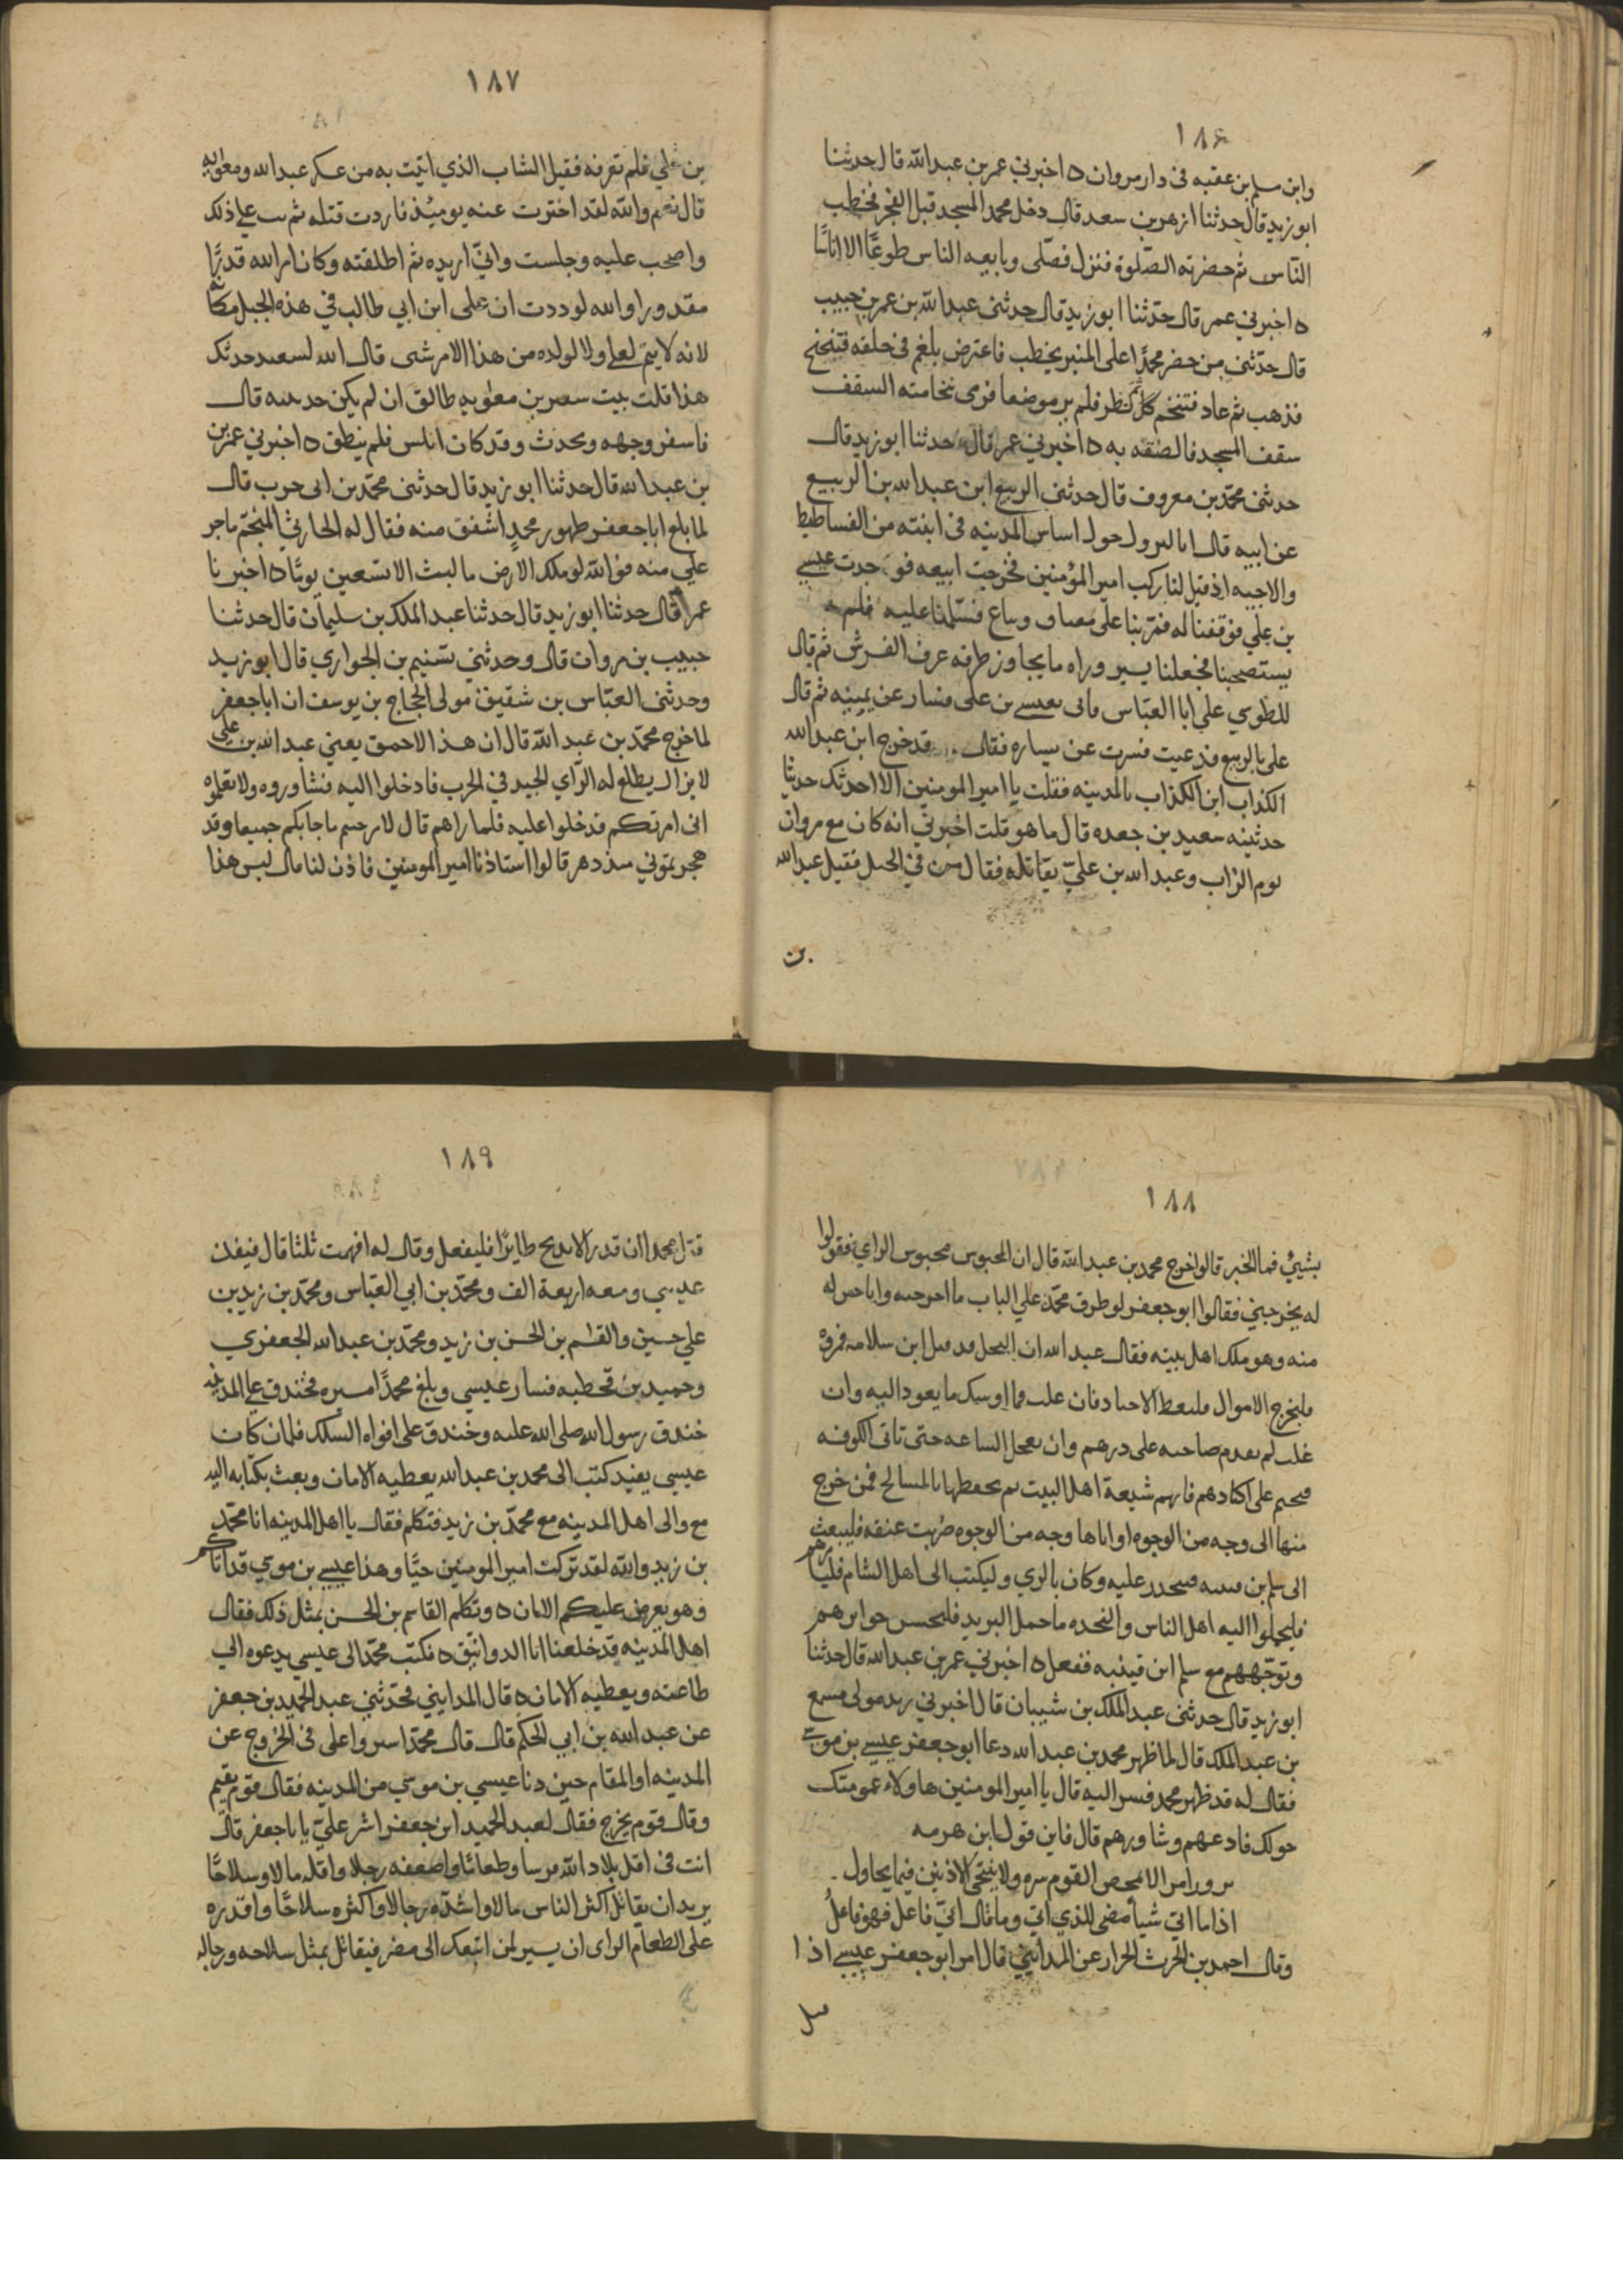 ١٨٦
وابن مسلم بن عقبه فى دار مروان ه اخبرني عمر بن عبد الله قال حدثنا
ابو زيد قال حدثنا ازهر بن سعد قال دخل محمد المسجد قبل الفجر فخطب
الناس ثم حضرته الصلوة فنزل فصلى وبايعه الناس طوعًا الا اناسًا
ه اخبرني عمر قال حدّثنا ابو زيد قال حدثنى عبد الله بن عمر بن حبيب
قال حدّثنى من حضر محمدًا على المنبر يخطب فاعترض بلغم فى حلقه فتنحنح
فذهب ثم عاد فتنخم نظر فلم ير موضعا فرمى بنخامته السقف
سقف المسجد فالصقه به ه اخبرني عمر قال حدثنا ابو زيد قال
حدثنى محمّد بن معروف قال حدثنى الربيع ابن عبد الله بن الربيع
عن ابيه قال انا حول اساس المدينه فى ابنته من الفساطيط
والاخبيه اذ قيل لنا ركب امير المؤمنين فخرجت ابيعه فوجدت عيسى
بن علي فوقفنا له فمر بنا على مصاف وساع فسلمنا عليه فلم
يستصحبنا فجعلنا يسير وراه ما يجاوز طرفه عرف الفرس ثم قال
للطوسي علي ابا العباس فاتى بعيسى بن على فسار عن يمينه ثم قال
على بالربيع فدعيت فسرت عن يساره فقال قد خرج ابن عبد الله
الكذاب ابن الكذاب بالمدينه فقلت يا امير المومنين الا احدثك حديثا
حدثنيه سعيد بن جعده قال ما هو قلت اخبرني انه كان مع مروان
يوم الزاب وعبد الله بن عليّ يقاتله فقال من في الخيل فقيل عبد الله
بن
١٨٧
بن علي فلم تعرفه فقيل الشاب الذي اتيت به من عسكر عبد الله ومعويه
قال نعم والله لقد اخترت عنه يوميذ فاردت قتله ثم على ذلك
واصحب عليه وجلست وانيّ اريده ثم اطلقته وكان امر الله قدرًا
مقدورا والله لوددت ان على ابن ابي طالب في هذه الجبل مكانه
لانه لا يتم لعلي ولا لولده من هذا الامر شى قال الله لسعيد حدثك
هذا قلت بيت بن معويه طالق ان لم يكن قال
فاسفر وجهه وتحدث وقد كان ابلس فلم ينطق ه اخبرني عمر بن
بن عبد الله قال حدثنا ابو زيد قال حدثنى محمّد بن ابى حرب قال
لما بلغ ابا جعفر ظهور محمد اشفق منه فقال له الحارثي المنجم ما جر
علي منه فوالله لو ملك الارض ما لبث الا تسعين يومًا ه اخبرنا
عمر قال حدثنا ابو زيد قال حدثنا عبد الملك بن سليمان قال حدثنا
حبيب بن مروان قال وحدثني تسنيم بن الحواري قال ابو زيد
وحدثنى العبّاس بن شقيق مولى الحجاج بن يوسف ان ابا جعفر
لما خرج محمّد بن عبد الله قال ان هذا الاحمق يعني عبد الله بن علي
لا يزال يطلع له الرّاي الجيد في الحرب فادخلوا اليه فشاوروه ولا تعلموه
انى امرتكم فدخلوا عليه فلما راهم قال لامر جيتم ما جا بكم جميعا وقد
هجرتموني منذ دهر قالوا استاذنا امير المومنين فاذن لنا قال ليس هذا
١٨٨
بشيئ فما الخبر قالوا خرج محمد بن عبد الله قال ان المحبوس محبوس الراي فقولوا
له يخرجني فقالوا ابو جعفر لو طرق محمّد علي الباب ما اخرجته وانا خير له
منه وهو ملك اهل بيته فقال عبد الله ان البخل قد قتل ابن سلامه فمروه
فليخرج الاموال فليعط الاجناد فان غلب فما اوشك ما يعود اليه وان
غلب لم يقدم صاحبه على درهم وان يعجل الساعه حتى تاتى الكوفه
على اكتادهم فانهم شيعة اهل البيت ثم يحفظها بالمسالح فمن خرج
منها الى وجه من الوجوه او اتاها وجه من الوجوه ضربت عنقه فليبعث
الى سلم بن فينحدر عليه وكان بالري وليكتب الى اهل الشام فليامرهم
فليحملوا اليه اهل الباس والنجده ما حمل البريد فليحسن جوايزهم
وتوجههم مع سلم ابن قتيبه ففعل ه اخبرني عمر بن عبد الله قال حدثنا
ابو زيد قال حدثنى عبد الملك بن شيبان قال اخبرني زيد مولى مسمع
بن عبد الملك قال لما ظهر محمد بن عبد الله دعا ابو جعفر عيسى بن موسى
فقال له قد ظهر محمد فسر اليه قال يا امير المومنين هاولاء عمومتك
حولك فادعهم وشاورهم قال فاين قول ابن هرمه
امرا لا يمحص القوم سره ولا ينتجى الاذنين فيما يحاول
اذا ما اتى شيأ مضى للذي اتى وما قال انيّ فاعل فهو فاعلُ
وقال احمد بن الحرث الحراز عن المدايني قال امر ابو جعفر عيسى اذا
قتل
١٨٩
قتل محمدا ان قدر الا يذبح طايرًا فليفعل وقال له افهمت ثلثا قال فنفذ
عيسي ومعه اربعة الف ومحمّد بن ابي العبّاس ومحمّد بن زيد بن
علي حسين والقسم بن الحسن بن زيد ومحمّد بن عبد الله الجعفري
وحميد بن قحطبه فسار عيسي وبلغ محمدًا مسيره فخندق على المدينه
خندق رسول الله صلى الله عليه وخندق على افواه السكك فلما ان كان
عيسي بفيد كتب الى محمد بن عبد الله يعطيه الامان وبعث بكتابه اليه
مع والى اهل المدينه مع محمّد بن زيد فتكلم فقال يا اهل المدينه انا محمّد
بن زيد والله لقد تركت امير المومنين حيًّا وهذا عيسى بن موسي قد اتاكم
وهو يعرض عليكم الامان ه وتكلم القاسم بن الحسن بمثل ذلك فقال
اهل المدينه قد خلعنا ابا الدوانيق ه فكتب محمّد الى عيسي يدعوه الي
طاعته ويعطيه الامان ه قال المدايني فحدّثني عبد الحميد بن جعفر
عن عبد الله بن ابي الحكم قال قال محمّد اشيروا على فى الخروج عن
المدينه او المقام حين دنا عيسي بن موسي من المدينه فقال قوم يقيم
وقال قوم يخرج فقال لعبد الحميد ابن جعفر اشر عليّ يا ابا جعفر قال
انت فى اقل بلاد الله فرسا وطعامًا واضعفه رجلا واقله مالا وسلاحًا
يريد ان يقاتل اكثر الناس مالا واشدّه رجالا واكثره سلاحًا واقدره
على الطعام الراى ان يسير لمن اتبعك الى مضر فيقاتل بمثل سلاحه ورجاله